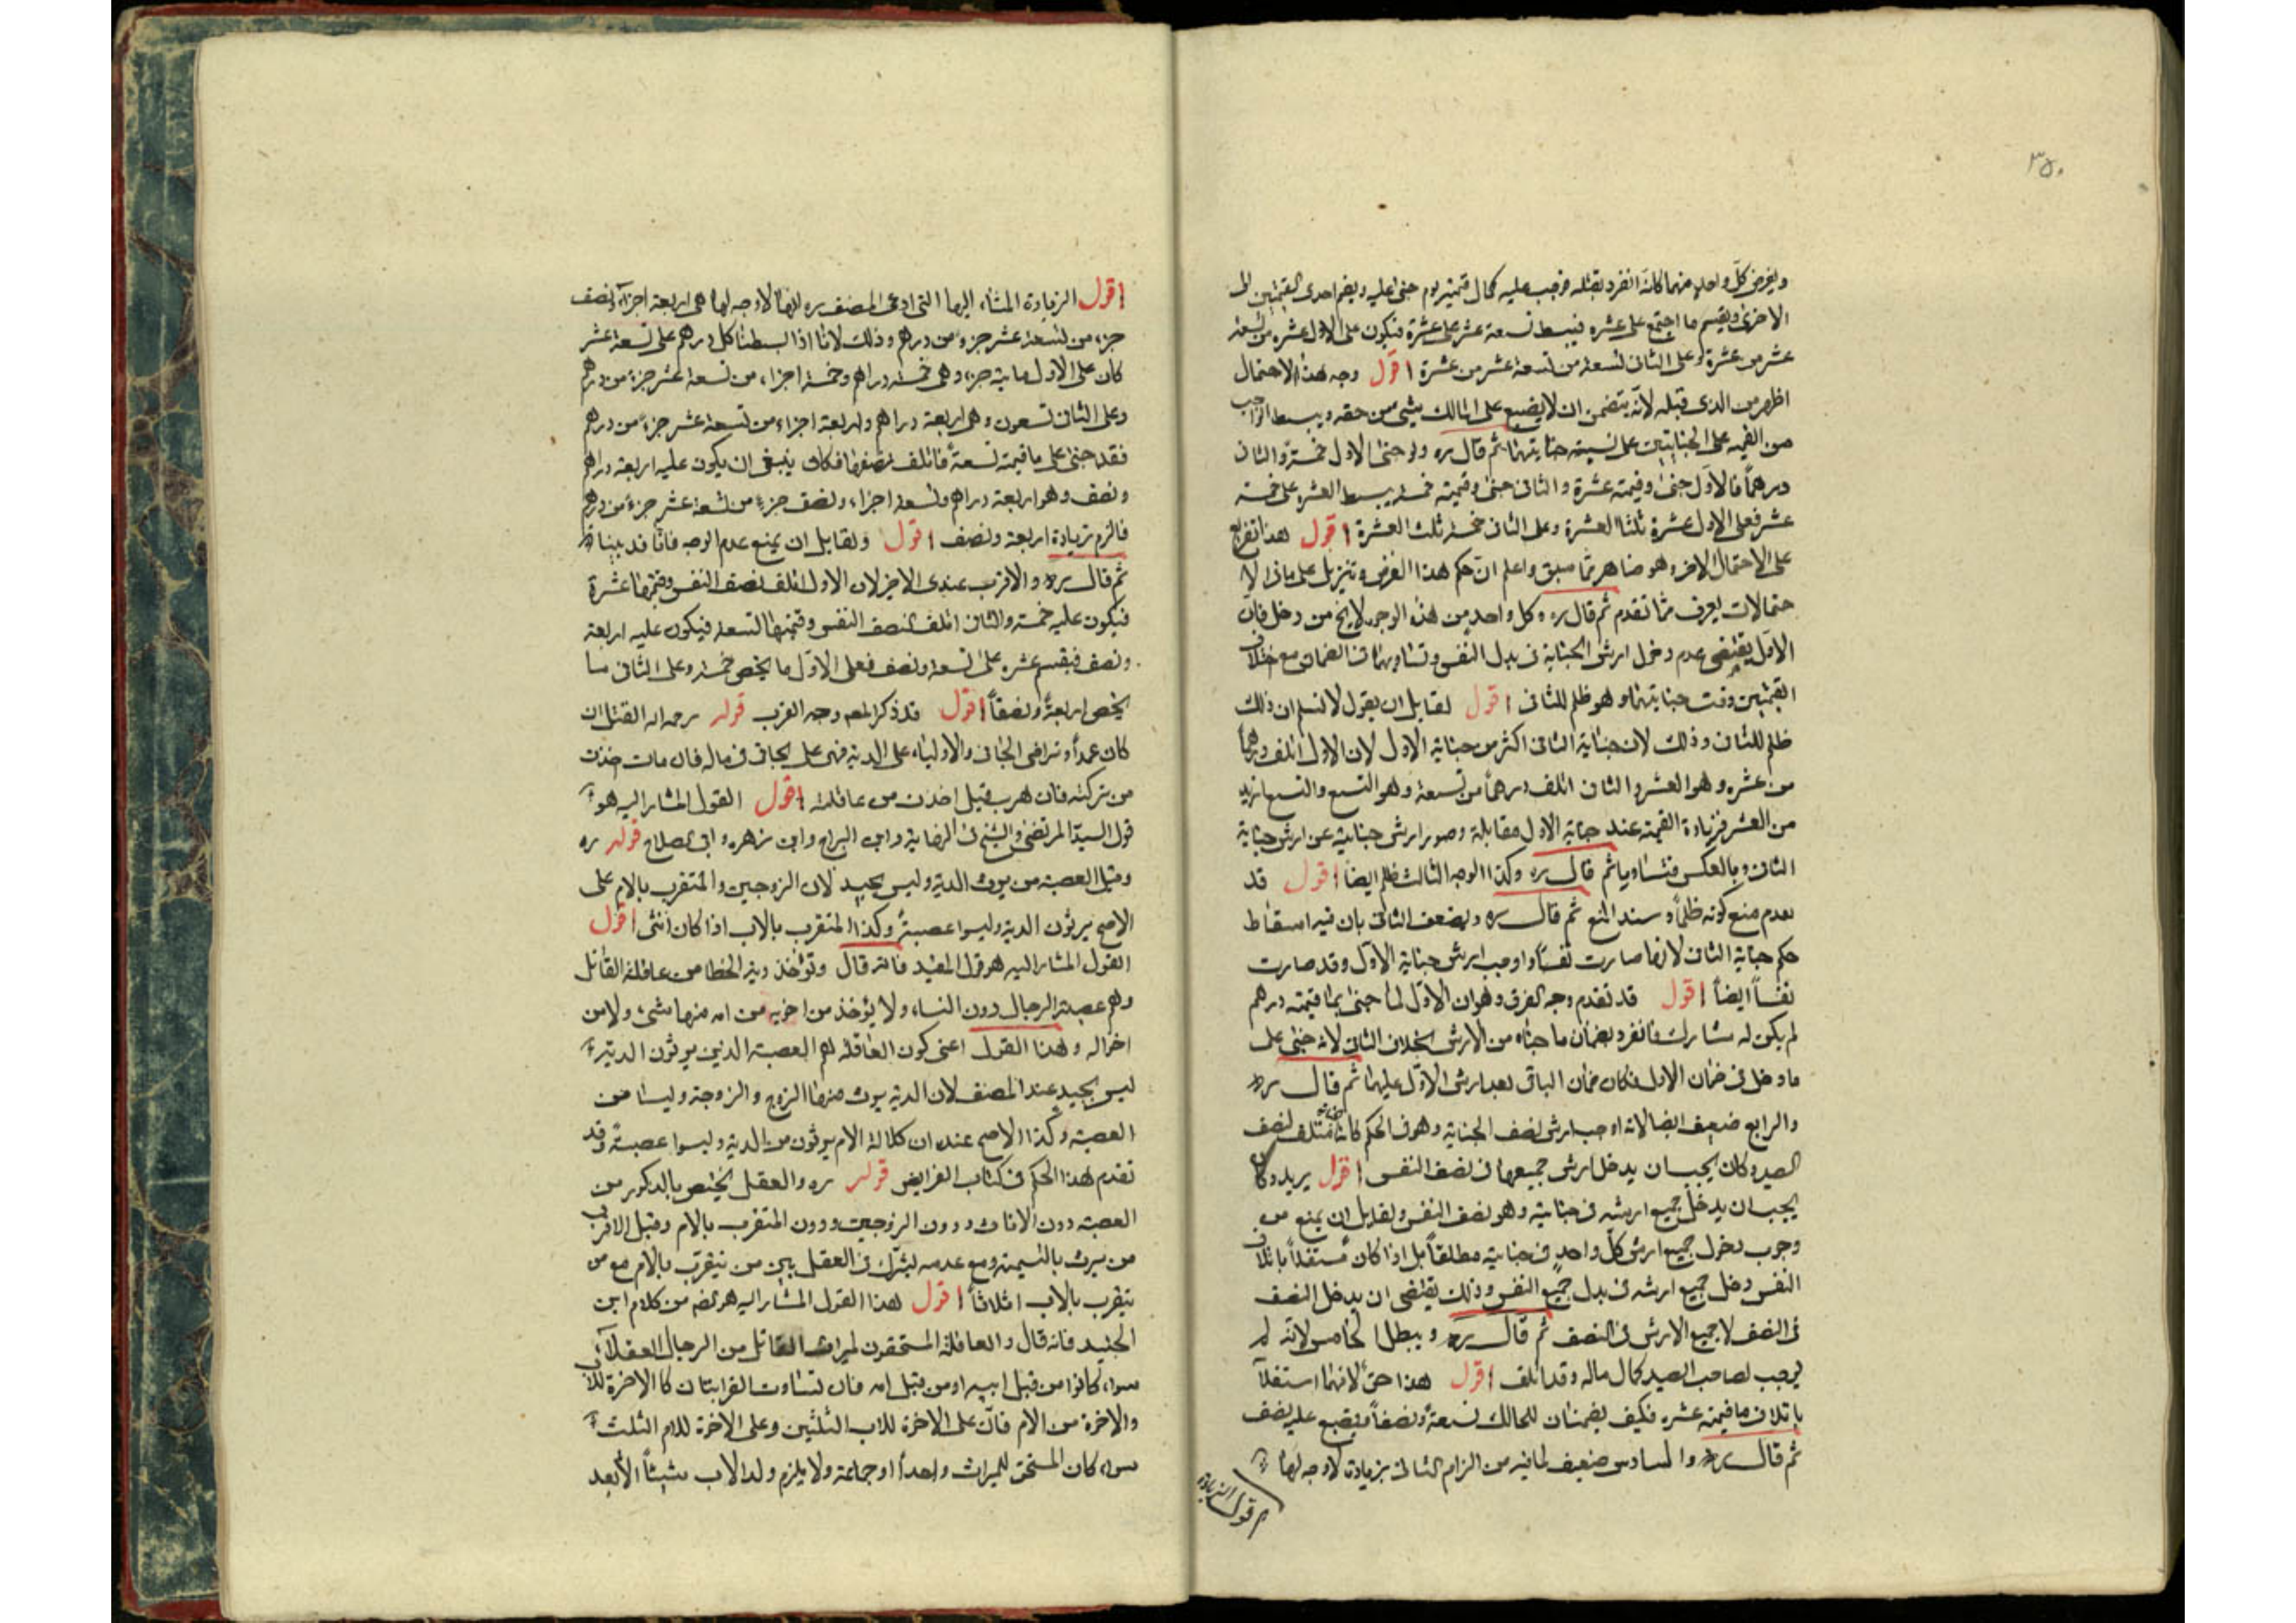 ٣٥٠
ويفرض كل واحد منهما كانه انفرد بقتله فوجب عليه كمال قيمته يوم جنى عليه ويضم احدى القيمتين الى
الاخرى ويقسم ما اجتمع على عشره فيبسط تسعة عشر على عشرة فيكون على الاول عشره من تسعة
عشر من عشرة وعلى الثاني تسعة من تسعة عشر من عشرة اقول وجه هذا الاحتمال
اظهر من الذي قبله لانه يتضمن ان لا يضيع على المالك شيء من حقه ويبسط الواجب
من القيمه على الجنايتين على نسبة جنايتهما ثم قال ره ولو جنى الاول خمسة والثاني
درهماً فالاول جنى وقيمته عشرة والثاني جنى وقيمته خمسة يبسط العشرة على خمسة
عشر فعلى الاول عشرة ثلثا العشرة وعلى الثاني خمسة ثلث العشرة اقول هذا تفريع
على الاحتمال الاخر وهو ظاهر مما سبق واعلم ان حكم هذا الفرض وتنزيل على باقي الا
حتمالات يعرف مما تقدم ثم قال ره وكل واحد من هذه الوجوه لا يخ من دخل فان
الاول يقتضي عدم دخول ارش الجناية في بدل النفس وتساويهما في الضمان مع اختلاف
القيمتين وقت جنايتهما وهو ظلم للثاني اقول لقايل ان يقول لا نسلم ان ذلك
ظلم للثاني وذلك لان جناية الثاني اكثر من جناية الاول لان الاول اتلف درهماً
من عشره وهو العشر والثاني اتلف درهماً من تسعة وهو التسع والتسع ازيد
من العشر فزيادة القيمة عند جناية الاول مقابلة وصور ارش جنايته عن ارش جناية
الثاني وبالعكس فتساويا ثم قال ره وكذا الوجه الثالث ظلم ايضا اقول قد
تقدم منع كونه ظلماً وسند المنع ثم قال ره ويضعف الثاني بان فيه اسقاط
حكم جناية الثاني لانها صارت نفساً واوجب ارش جناية الاول وقد صارت
نفساً ايضاً اقول قد تقدم وجه الفرق وهو ان الاول لما جنى بما قيمته درهم
لم يكن له مشارك فانفرد بضمان ما جناه من الارش بخلاف الثاني لانه جنى على
ما دخل في ضمان الاول فكان ضمان الباقي بعد ارش الاول عليهما ثم قال ره
والرابع ضعيف ايضا لانه اوجب ارش نصف الجناية وهو في الحكم كانه متلف لنصف
الصيد وكان يجب ان يدخل ارش جميعها في نصف النفس اقول يريد وكان
يجب ان يدخل جميع ارشه في جنايته وهو نصف النفس ولقايل ان يمنع من
وجوب دخول جميع ارش كل واحد في جنايته مطلقاً بل اذا كان مستقلاً باتلاف
النفس دخل جميع ارشه في بدل جميع النفس وذلك يقتضي ان يدخل النصف
في النصف لا جميع الارش في النصف ثم قال ره ويبطل الخامس لانه لم
يوجب لصاحب الصيد كمال ماله وقد اتلف اقول هذا حق لانهما استقلا
باتلاف ما قيمته عشره فكيف يضمنان للمالك تسعة ونصفاً ويضيع عليه نصف
ثم قال ره والسادس ضعيف لما فيه من الزام الثاني بزيادة لا وجه لها
اقول الزيادة
اقول الزيادة المشار اليها التي ادعى المصنف ره انها لا وجه لها هي اربعة اجزاء ونصف
جزء من تسعة عشر جزء من درهم وذلك لانا اذا بسطنا كل درهم على تسعة عشر
كان على الاول ماية جزء وهي خمسة دراهم وخمسة اجزاء من تسعة عشر جزء من درهم
وعلى الثاني تسعون وهي اربعة دراهم واربعة اجزاء من تسعة عشر جزء من درهم
فقد جنى على ما قيمته تسعة فاتلف نصفها فكان ينبغي ان يكون عليه اربعة دراهم
ونصف وهو اربعة دراهم وتسعة اجزاء ونصف جزء من تسعة عشر جزء من درهم
فالزم بزيادة اربعة ونصف اقول ولقايل ان يمنع عدم الوجه فانا قد بينا
ثم قال ره والاقرب عندى الاخير لان الاول اتلف نصف النفس وقيمتها عشرة
فيكون عليه خمسة والثاني اتلف نصف النفس وقيمتها تسعة فيكون عليه اربعة
ونصف فيقسم عشره على تسعة ونصف فعلى الاول ما يخص خمسة وعلى الثاني ما
يخص اربعة ونصفاً اقول قد ذكر المصه وجه القرب قوله رحمه الله القتل ان
كان عمداً وتراضى الجاني والاولياء على الدية فهى على الجاني في ماله فان مات اخذت
من تركته فان هرب قيل اخذت من عاقلته اقول القول المشار اليه هو
قول السيد المرتضى والشيخ في النهاية وابن البراج وابن زهره وابي الصلاح قوله ره
وقيل العصبة من يرث الدية وليس بجيد لان الزوجين والمتقرب بالام على
الاصح يرثون الدية وليسوا عصبة وكذا المتقرب بالاب اذا كان انثى اقول
القول المشار اليه هو قول المفيد فانه قال وتؤخذ دية الخطا من عاقلة القاتل
وهم عصبته الرجال دون النساء ولا يؤخذ من اخوته من امه منها شيء ولا من
اخواله وهذا القول اعنى كون العاقلة هم العصبة الذين يرثون الدية
ليس بجيد عند المصنف لان الدية يرث منها الزوج والزوجة وليسا من
العصبة وكذا الاصح عنده ان كلالة الام يرثون من الدية وليسوا عصبة وقد
تقدم هذا الحكم في كتاب الفرايض قوله ره والعقل يختص بالذكور من
العصبة دون الاناث ودون الزوجين ودون المتقرب بالام وقيل الاقرب
من يرث بالتسمية ومع عدمه يشترك في العقل بين من يتقرب بالام مع من
يتقرب بالاب اثلاثاً اقول هذا القول المشار اليه هو يفهم من كلام ابن
الجنيد فانه قال والعاقلة المستحقون لميراث القاتل من الرجال العقلاء
سواء كانوا من قبل ابيه او من قبل امه فان تساوت القرابتان كالاخوة للاب
والاخوة من الام فان على الاخوة للاب الثلثين وعلى الاخوة للام الثلث
سواء كان المستحق للميراث واحداً او جماعة ولا يلزم ولد الاب شيئاً الا بعد